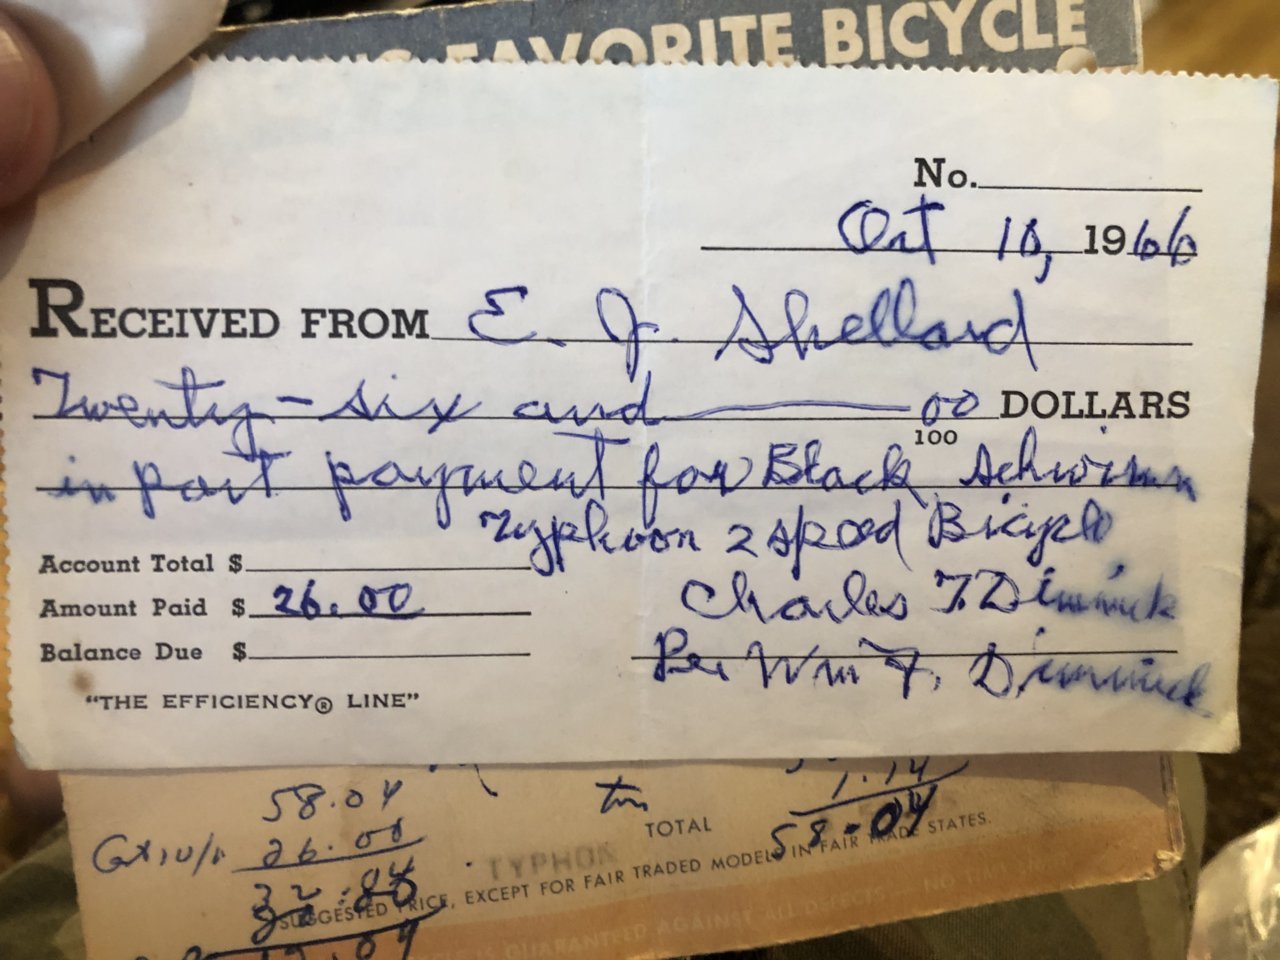 FAVORITE BICYCLE
No.
Oct 10, 1966
RECEIVED FROM E. J. Shellard
Twenty-six and 00/100 DOLLARS
in part payment for Black Schwinn
Typhoon 2 speed Bicycle
Account Total $
Charles F. Dimmick
Amount Paid $ 26.00
Balance Due $
Per Wm F. Dimmick
"THE EFFICIENCY® LINE"
58.04
26.00
TOTAL 58.04
TYPHOON
SUGGESTED PRICE, EXCEPT FOR FAIR TRADED MODELS IN FAIR TRADE STATES.